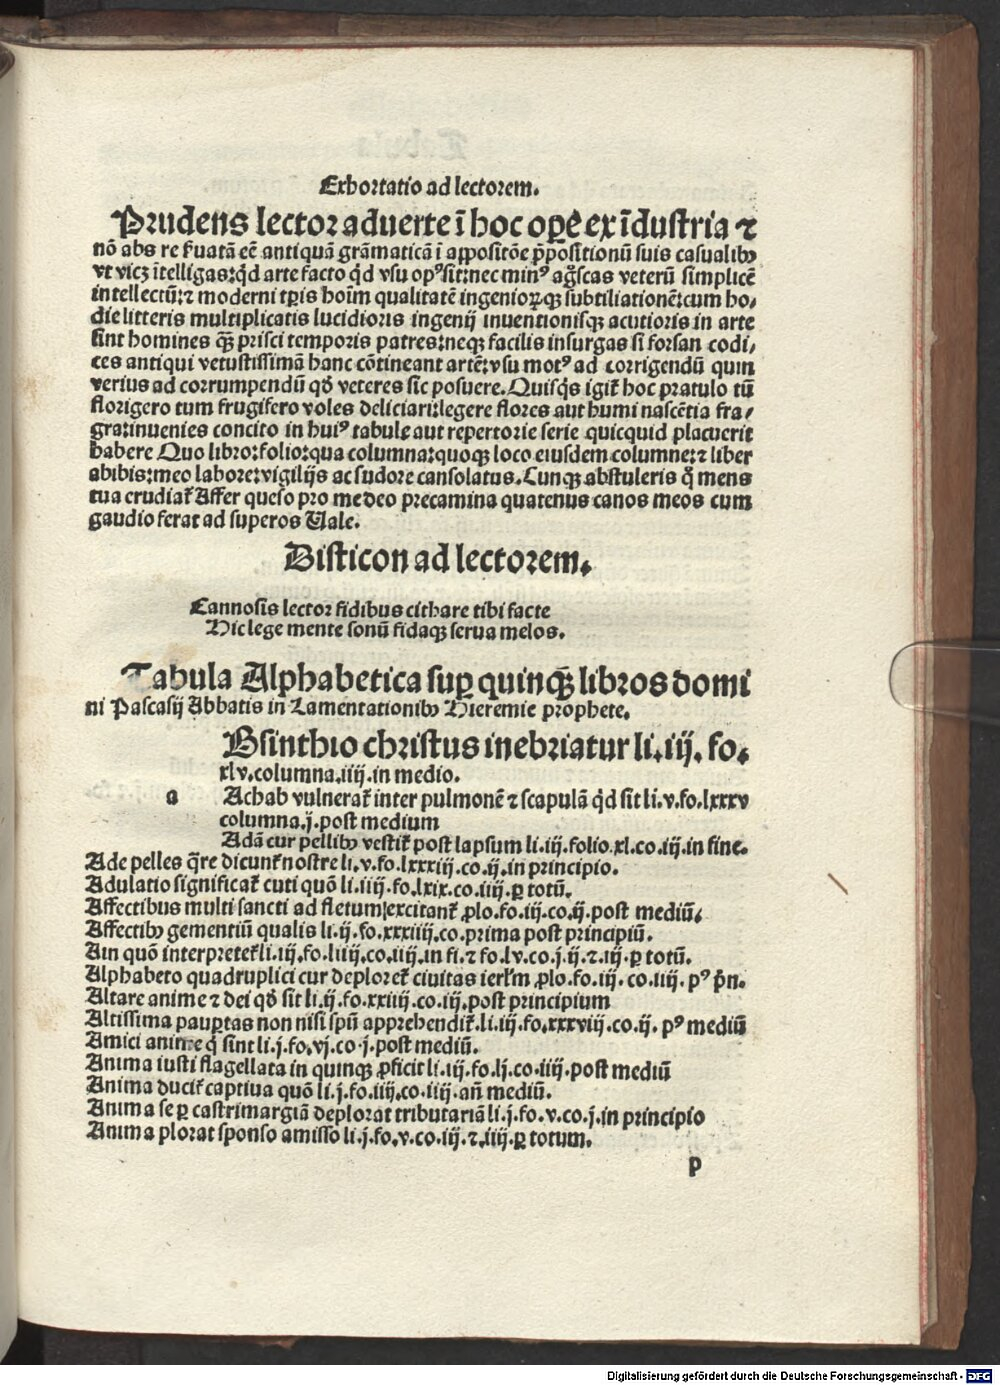 Exhortatio ad lectorem.
Prudens lector aduerte ī hoc opē ex īdustria ⁊
nō abs re ẜuatā eē antiquā grāmaticā ī appositōe p̄positionū suis casualibꝰ
vt vicꝫ ītelligas:qd arte facto qd vsu opꝰ sit:nec minꝰ agscas veterū simplicē
intellectū:⁊ moderni tꝑis hoīm qualitatē ingenioꝝqꝫ subtiliationē:cum ho/
die litteris multiplicatis lucidioris ingenij inuentionisqꝫ acutioris in arte
sint homines qꝫ prisci temporis patres:neqꝫ facilis insurgas si forsan codi/
ces antiqui vetustissimā hanc cōtineant artē:vsu motꝰ ad corrigendū quin
verius ad corrumpendū qd veteres sic posuere. Quisqs igit̄ hoc pratulo tū
florigero tum frugifero voles deliciari:legere flores aut humi nascētia fra/
gra:inuenies concito in huiꝰ tabule aut repertorie serie quicquid placuerit
habere Quo libro:folio:qua columna:quoqꝫ loco eiusdem columne:⁊ liber
abibis:meo labore:vigilijs ac sudore cansolatus. Cunqꝫ abstuleris q̄ mens
tua crudiat̄ Affer queso pro me deo precamina quatenus canos meos cum
gaudio ferat ad superos Uale.
Disticon ad lectorem.
Cannosis lector fidibus cithare tibi facte
Hic lege mente sonū fidaqꝫ serua melos.
Tabula Alphabetica suꝑ quinqꝫ libros domi
ni Pascasij Abbatis in Lamentationibꝰ Hieremie prophete.
Bsinthio christus inebriatur li.iij. fo.
xlv.columna.iiij.in medio.
a Achab vulnerat̄ inter pulmonē ⁊ scapulā qd sit li.v.fo.lxxxv
columna.j.post medium
Adā cur pellibꝰ vestit̄ post lapsum li.iij.folio.xl.co.iij.in fine.
Ade pelles q̄re dicunt̄ nostre li.v.fo.lxxxiij.co.ij.in principio.
Adulatio significat̄ cuti quō li.iiij.fo.lxix.co.iiij.ꝑ totū.
Affectibus multi sancti ad fletum excitant̄ ꝓlo.fo.iij.co.ij.post mediū.
Affectibꝰ gementiū qualis li.ij.fo.xxxiiij.co.prima post principiū.
Ain quō interpretet̄ li.iij.fo.liiij.co.iiij.in fi.⁊ fo.lv.co.j.ij.⁊.iij.ꝑ totū.
Alphabeto quadruplici cur deploret̄ ciuitas ierl̄m ꝓlo.fo.iij. co.iiij. pꝰ p̄n.
Altare anime ⁊ dei qd sit li.ij.fo.xxiiij.co.iij.post principium
Altissima pauꝑtas non nisi spū apprehendit̄.li.iij.fo.xxxviij.co.ij. pꝰ mediū
Amici anime q̄ sint li.j.fo.vj.co.j.post mediū.
Anima iusti flagellata in quinqꝫ ꝓficit li.iij.fo.lj.co.iiij.post mediū
Anima ducit̄ captiua quō li.j.fo.iiij.co.iiij.an̄ mediū.
Anima se ꝑ castrimargiā deplorat tributariā li.j.fo.v.co.j.in principio
Anima plorat sponso amisso li.j.fo.v.co.iij.⁊.iiij.ꝑ totum.
p
Digitalisierung gefördert durch die Deutsche Forschungsgemeinschaft - DFG